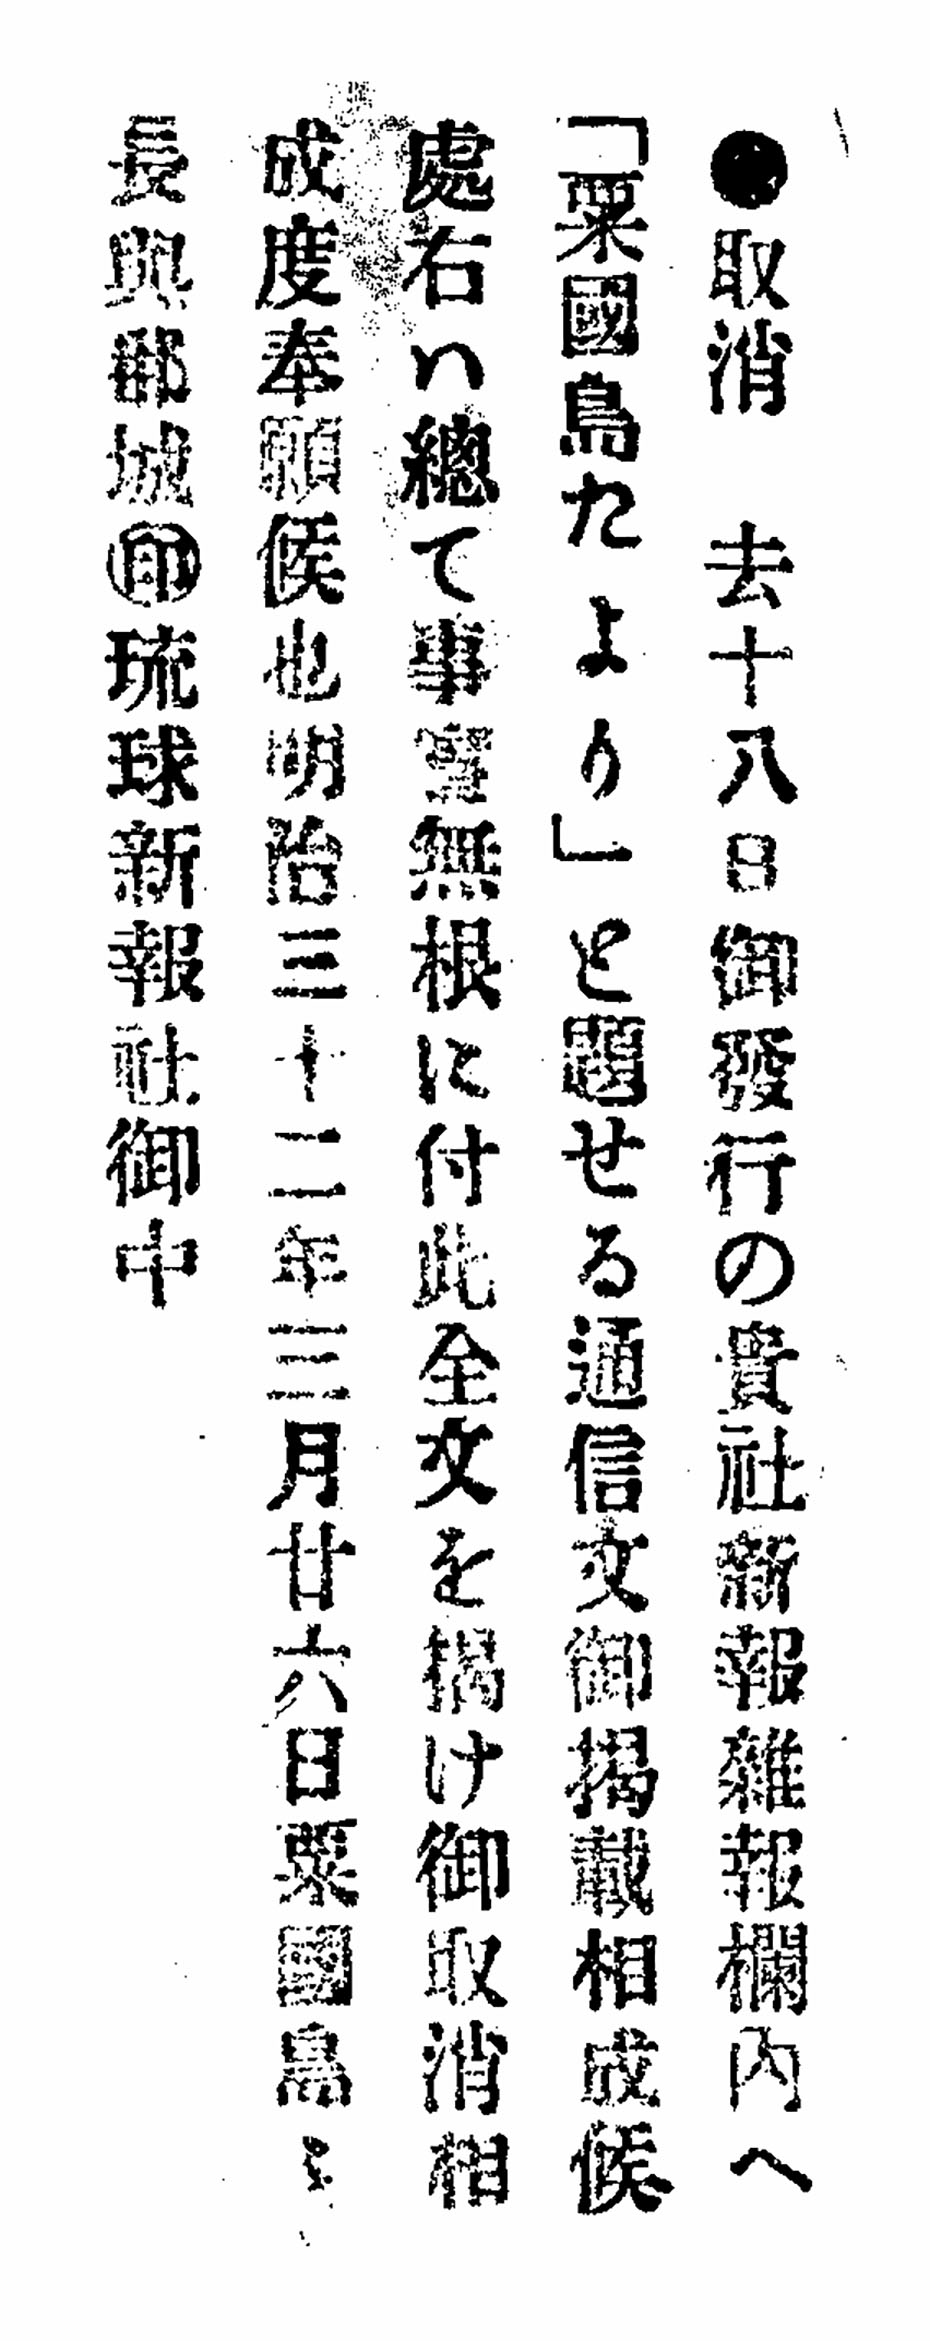 ●取消　去十八日御發行の貴社新報雜報欄內へ
「粟國島たより」と題せる通信文御揭載相成候
處右ハ總て事實無根に付此全文を揭け御取消相
成度奉願候也明治三十二年三月廿六日粟國島々
長與那城㊞琉球新報社御中